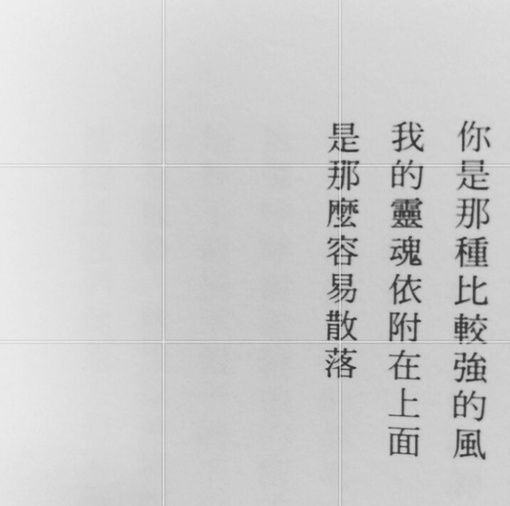 你是那種比較強的風
我的靈魂依附在上面
是那麼容易散落